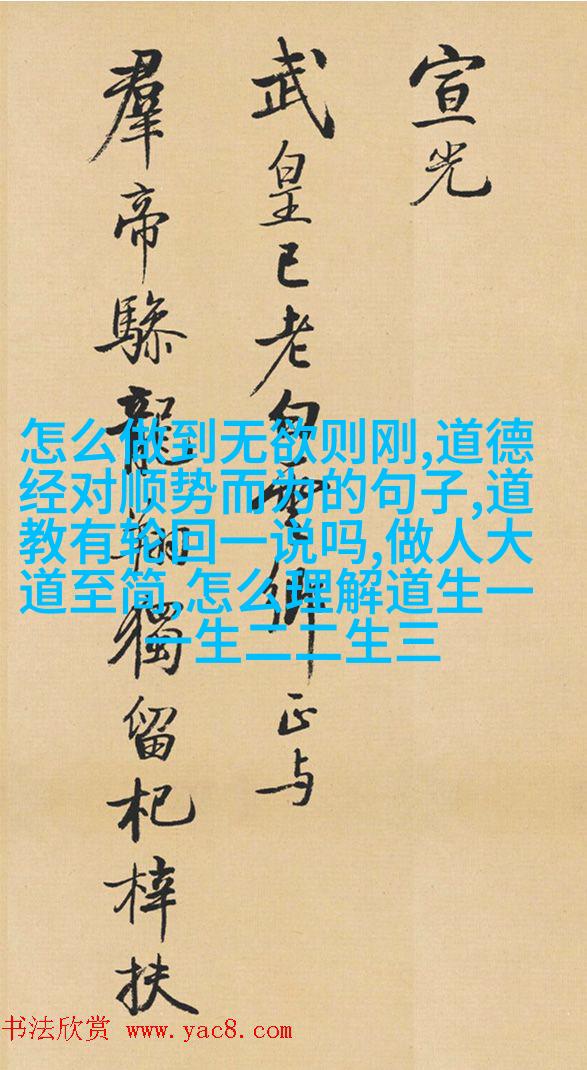 宣光
武皇已老白雲鄉正与
羣帝驂龍翱獨留杞梓扶
怎么做到无欲则刚,道德
经对顺势而为的句子,道
教有轮回一说吗,做人大
道至简,怎么理解道生一
一生二二生三
书法欣赏 www.yac8.com